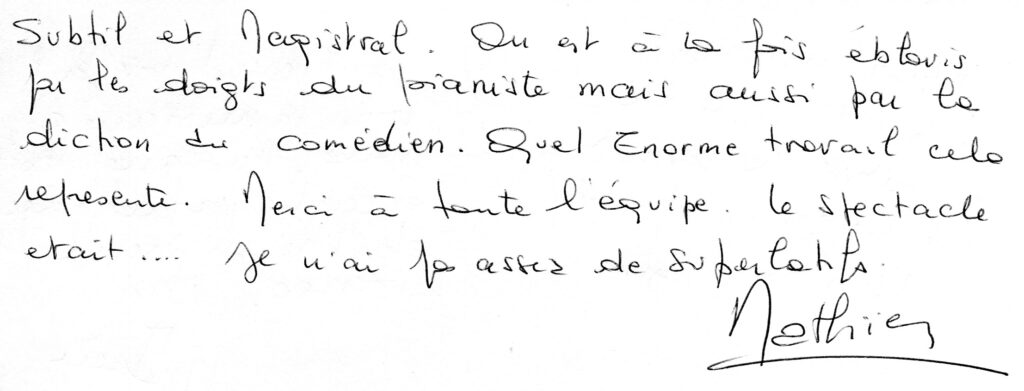 Subtil et Magistral. On est à la fois éblouis
par les doigts du pianiste mais aussi par la
diction du comédien. Quel Enorme travail cela
represente. Merci à toute l'équipe. le spectacle
etait .... Je n'ai pas assez de superlatifs.
Mathieu